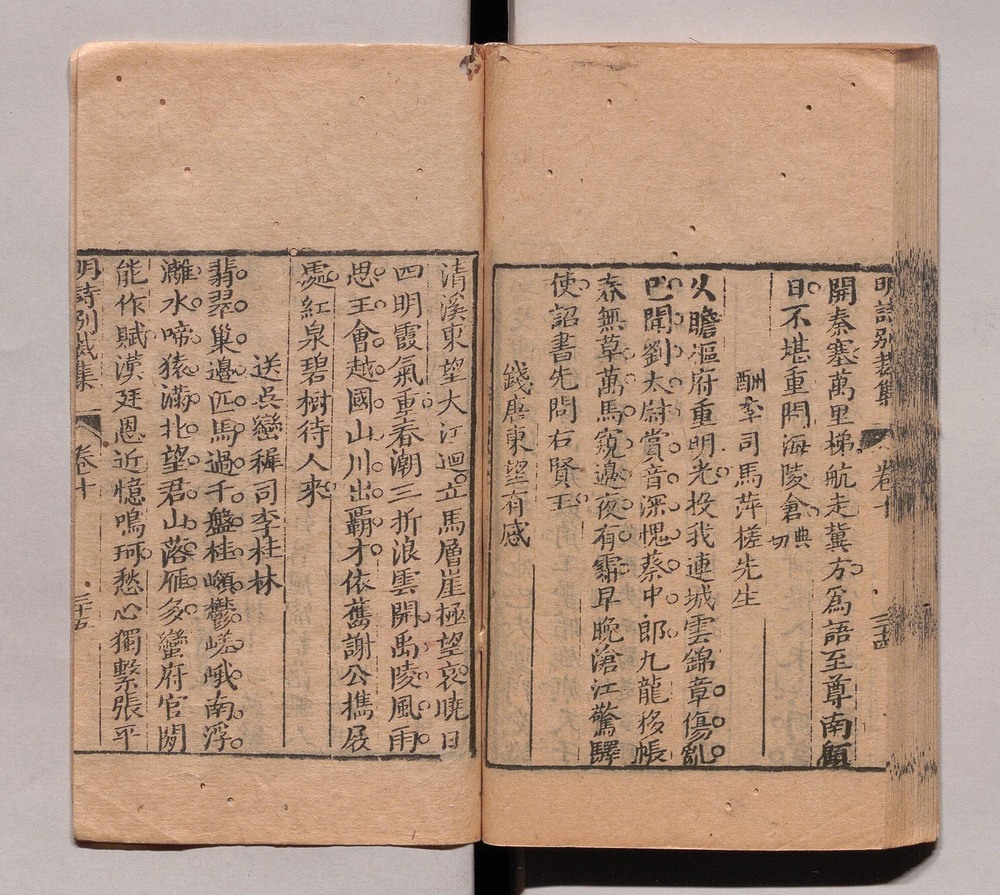 明詩別裁集 卷十 三十四
開秦塞萬里梯航走冀方為語至尊南顧
日不堪重問海陵倉典切
酬李司馬萍槎先生
火瞻樞府重明光投我連城雲錦章傷亂
巴聞劉太尉賞音深愧蔡中郎九龍移帳
春無草萬馬窺邊夜有霜早晚滄江驚驛
使詔書先問右賢王
錢唐東望有感
清溪東望大江迴立馬層崖極望哀曉日
四明霞氣重春潮三折浪雲開禹陵風雨
思王會越國山川出霸才依舊謝公攜屐
處紅泉碧樹待人來
送吳巒稺司李桂林
翡翠巢邊匹馬過千盤桂嶺鬱嵯峨南浮
灕水啼猿滿北望君山落雁多蠻府官閒
能作賦漢廷恩近憶鳴珂愁心獨繫張平
明詩別裁集 卷十 三十五